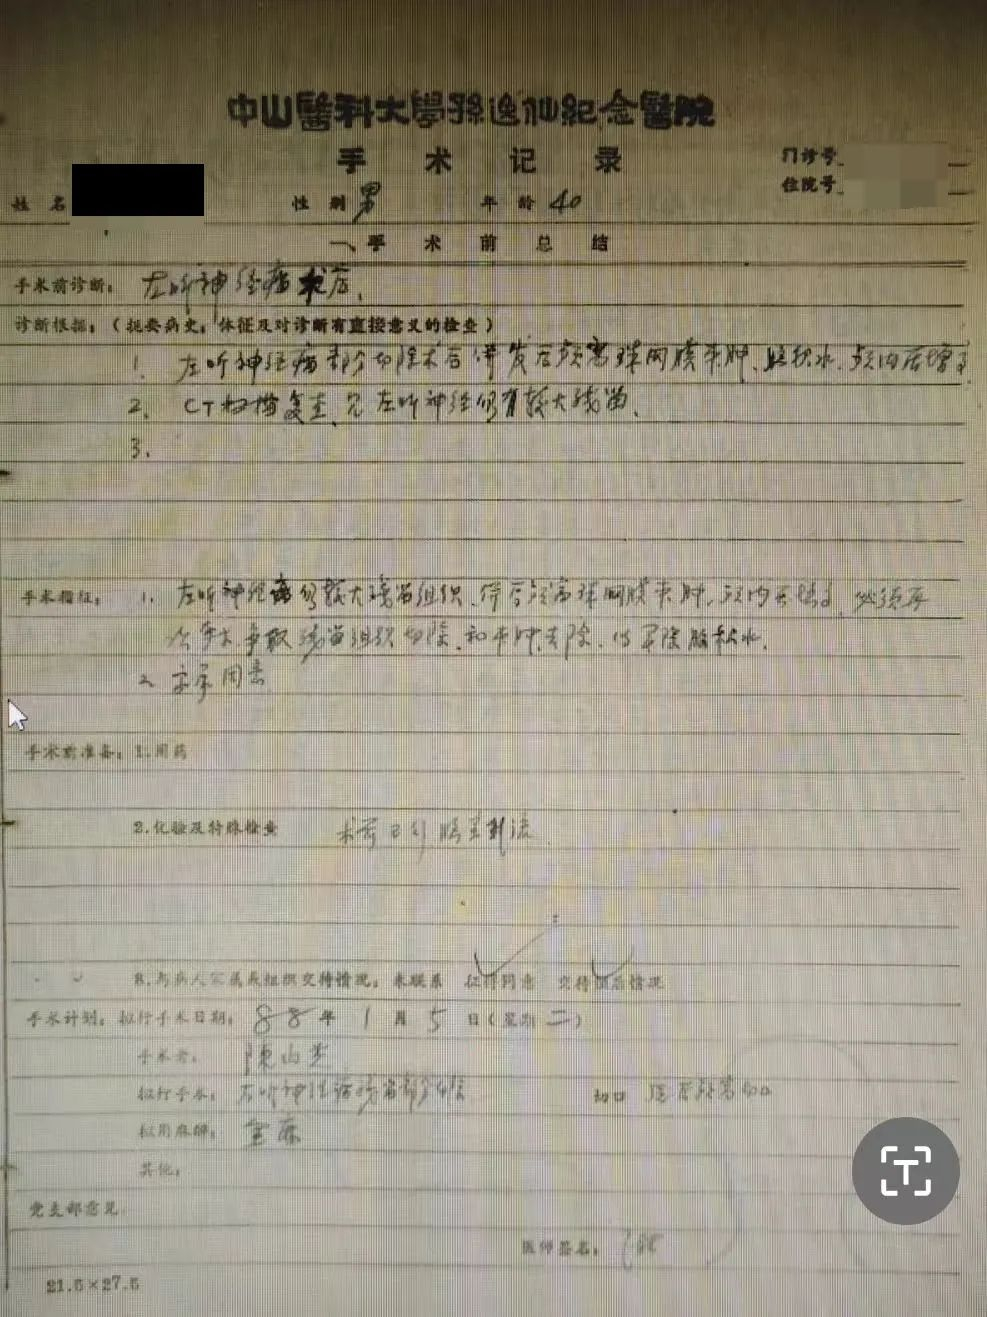 中山醫科大學孫逸仙紀念醫院
手术记录
门诊号
住院号
姓名 性别 男 年龄 40
一、手术前总结
手术前诊断: 左听神经瘤术后.
诊断根据:(扼要病史,体征及对诊断有直接意义的检查)
1. 左听神经瘤部分切除术后併发后颅窝蛛网膜囊肿、脑积水.颅内压增高
2. CT扫描复查,见左听神经仍有较大残留.
3.
手术指征: 1. 左听神经瘤仍较大残留组织.后颅窝蛛网膜囊肿,颅内压增高,必须再
次手术,争取残留组织切除.和囊肿去除.除脑积水.
2. 家属同意
手术前准备:1.用药
2.化验及特殊检查 术前已行脑室引流
3.与病人家属或组织交待情况:未联系 征得同意 交待预后情况
手术计划:拟行手术日期:88年1月5日(星期二)
手术者:
拟行手术:左听神经瘤残留部分切除 切口
拟用麻醉:全麻
其他:
党支部意见
医师签名:
21.5×27.5